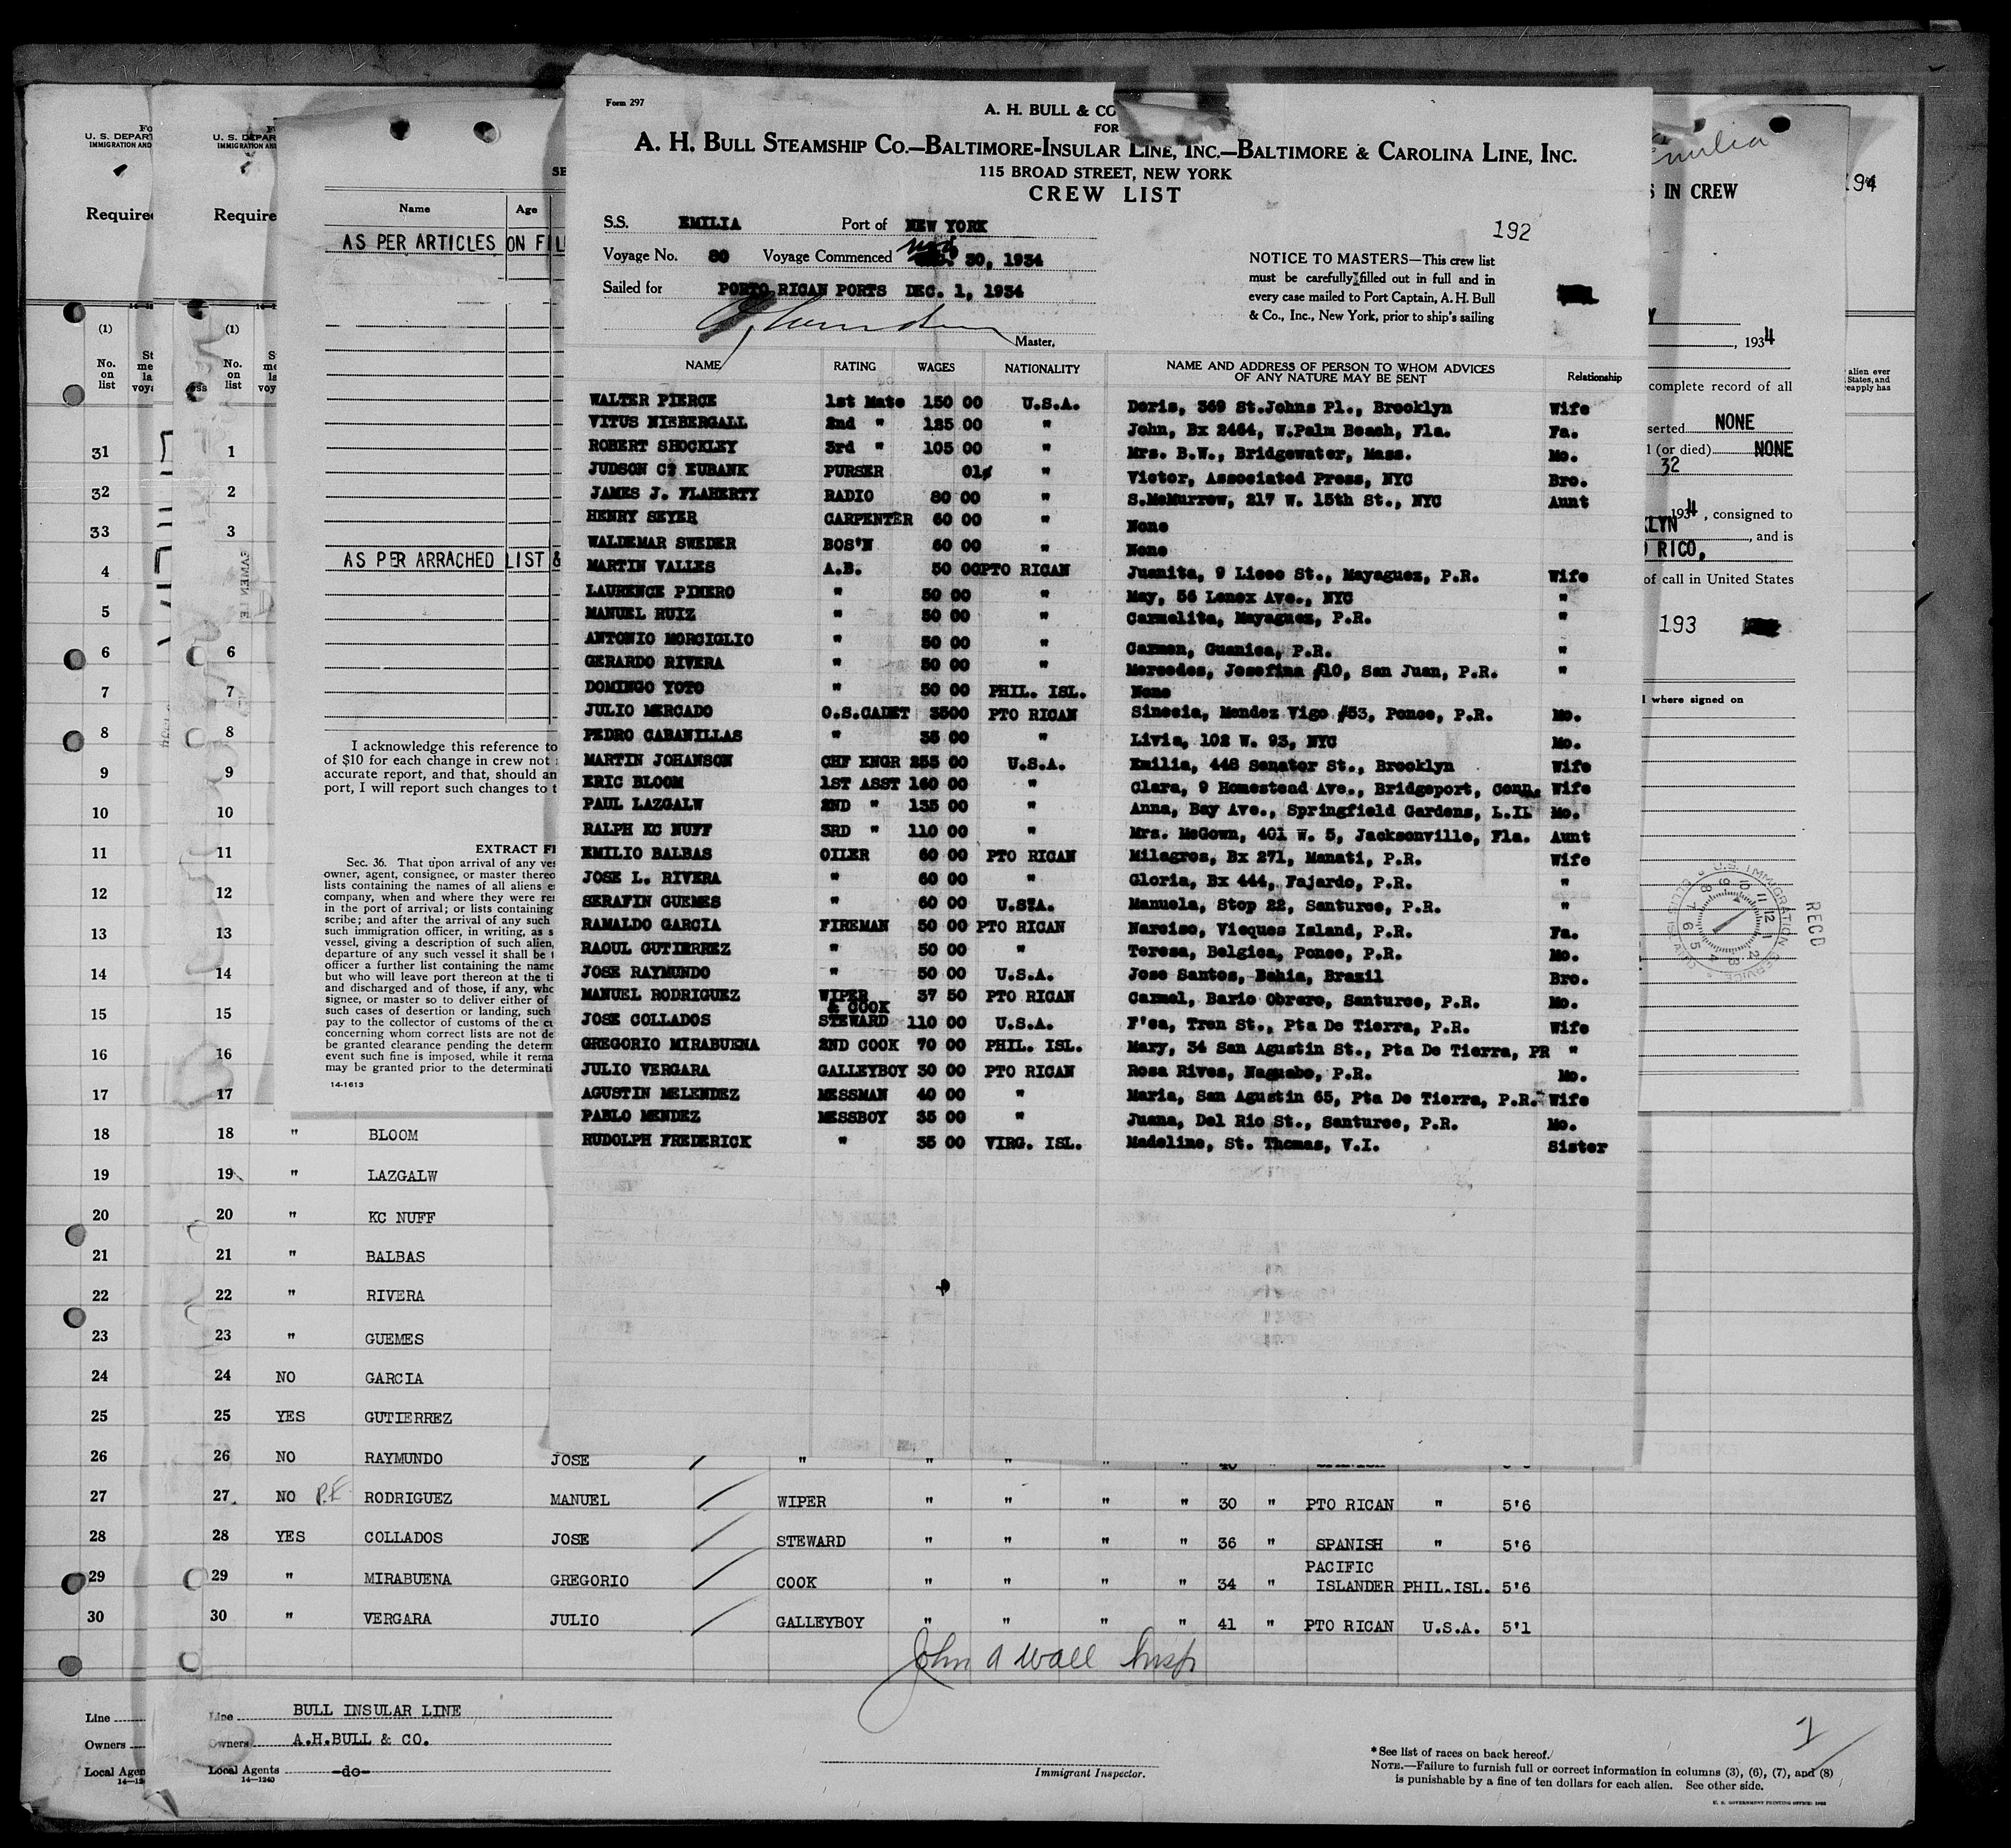 Form 297
A. H. BULL & CO
FOR
A. H. BULL STEAMSHIP CO.—BALTIMORE-INSULAR LINE, INC.—BALTIMORE & CAROLINA LINE, INC.
115 BROAD STREET, NEW YORK
CREW LIST
S.S. EMILIA Port of NEW YORK
192
Voyage No. 80 Voyage Commenced Nov 30, 1934
Sailed for PORTO RICAN PORTS DEC. 1, 1934
Master.
NOTICE TO MASTERS—This crew list
must be carefully filled out in full and in
every case mailed to Port Captain, A. H. Bull
& Co., Inc., New York, prior to ship's sailing
NAME RATING WAGES NATIONALITY NAME AND ADDRESS OF PERSON TO WHOM ADVICES OF ANY NATURE MAY BE SENT Relationship
WALTER PIERCE 1st Mate 150 00 U.S.A. Doris, 369 St.Johns Pl., Brooklyn Wife
VITUS NISBERGALL 2nd " 125 00 " John, Bx 2464, W.Palm Beach, Fla. Fa.
ROBERT SHOCKLEY 3rd " 105 00 " Mrs. B.W., Bridgewater, Mass. Mo.
JUDSON C. EUBANK PURSER 01¢ " Victor, Associated Press, NYC Bro.
JAMES J. FLAHERTY RADIO 80 00 " S.McMurrow, 217 W. 15th St., NYC Aunt
HENRY SEYER CARPENTER 60 00 " None
WALDEMAR SWEDER BOS'N 60 00 " None
MARTIN VALLES A.B. 50 00 PTO RICAN Juanita, 9 Liceo St., Mayaguez, P.R. Wife
LAURENCE PINERO " 50 00 " May, 56 Lenox Ave., NYC "
MANUEL RUIZ " 50 00 " Carmelita, Mayaguez, P.R. "
ANTONIO MORCIGLIO " 50 00 " Carmen, Guanica, P.R. "
GERARDO RIVERA " 50 00 " Mercedes, Josefina #10, San Juan, P.R. "
DOMINGO YOTO " 50 00 PHIL. ISL. None
JULIO MERCADO O.S.CADET 3500 PTO RICAN Sinecia, Mendez Vigo #53, Ponce, P.R. Mo.
PEDRO CABANILLAS " 35 00 " Livia, 102 W. 93, NYC Mo.
MARTIN JOHANSON CHF ENGR 255 00 U.S.A. Emilia, 448 Senator St., Brooklyn Wife
ERIC BLOOM 1ST ASST 160 00 " Clara, 9 Homestead Ave., Bridgeport, Conn. Wife
PAUL LAZGALW 2ND " 135 00 " Anna, Bay Ave., Springfield Gardens, L.II Mo.
RALPH KC NUFF 3RD " 110 00 " Mrs. McGown, 401 W. 5, Jacksonville, Fla. Aunt
EMILIO BALBAS OILER 60 00 PTO RICAN Milagros, Bx 271, Manati, P.R. Wife
JOSE L. RIVERA " 60 00 " Gloria, Bx 444, Fajardo, P.R. "
SERAFIN GUEMES " 60 00 U.S.A. Manuela, Stop 22, Santurce, P.R. "
RAMALDO GARCIA FIREMAN 50 00 PTO RICAN Narciso, Vieques Island, P.R. Fa.
RAOUL GUTIERREZ " 50 00 " Teresa, Belgica, Ponce, P.R. Mo.
JOSE RAYMUNDO " 50 00 U.S.A. Jose Santos, Bahia, Brazil Bro.
MANUEL RODRIGUEZ WIPER 37 50 PTO RICAN Carmel, Bario Obrero, Santurce, P.R. Mo.
& COOK
JOSE COLLADOS STEWARD 110 00 U.S.A. F'ca, Tren St., Pta De Tierra, P.R. Wife
GREGORIO MIRABUENA 2ND COOK 70 00 PHIL. ISL. Mary, 34 San Agustin St., Pta De Tierra, PR "
JULIO VERGARA GALLEYBOY 30 00 PTO RICAN Rosa Rives, Naguabo, P.R. Mo.
AGUSTIN MELENDEZ MESSMAN 40 00 " Maria, San Agustin 65, Pta De Tierra, P.R. Wife
PABLO MENDEZ MESSBOY 35 00 " Juana, Del Rio St., Santurce, P.R. Mo.
RUDOLPH FREDERICK " 35 00 VIRG. ISL. Madeline, St. Thomas, V.I. Sister
U. S. DEPART
IMMIGRATION AND
Required
(1)
No.
on
list
31
32
33
4
5
6
7
8
9
10
11
12
13
14
15
16
17
18
19
20
21
22
23
24
25
26
27
28
29
30
Line
Owners
Local Agen
U. S. DEPAR
IMMIGRATION AN
Require
(1)
No.
on
list
1
2
3
6
7
8
9
10
11
12
13
14
15
16
17
Name Age
AS PER ARTICLES ON FIL
AS PER ARRACHED LIST &
I acknowledge this reference to
of $10 for each change in crew not
accurate report, and that, should an
port, I will report such changes to t
EXTRACT F
Sec. 36. That upon arrival of any ves
owner, agent, consignee, or master thereo
lists containing the names of all aliens e
company, when and where they were re
in the port of arrival; or lists containing
scribe; and after the arrival of any such
such immigration officer, in writing, as s
vessel, giving a description of such alien,
departure of any such vessel it shall be
officer a further list containing the name
but who will leave port thereon at the ti
and discharged and of those, if any, who
signee, or master so to deliver either of
such cases of desertion or landing, such
pay to the collector of customs of the cu
concerning whom correct lists are not de
be granted clearance pending the determ
event such fine is imposed, while it rema
may be granted prior to the determinati
14-1613
18 " BLOOM
19 " LAZGALW
20 " KC NUFF
21 " BALBAS
22 " RIVERA
23 " GUEMES
24 NO GARCIA
25 YES GUTIERREZ
26 NO RAYMUNDO JOSE " " " " "
27 NO P.E RODRIGUEZ MANUEL WIPER " " " " 30 " PTO RICAN " 5'6
28 YES COLLADOS JOSE STEWARD " " " " 36 " SPANISH " 5'6
29 " MIRABUENA GREGORIO COOK " " " " 34 " PACIFIC ISLANDER PHIL.ISL. 5'6
30 " VERGARA JULIO GALLEYBOY " " " " 41 " PTO RICAN U.S.A. 5'1
John A Wall Insp
Line BULL INSULAR LINE
Owners A.H.BULL & CO.
Local Agents -do-
14-1240
Immigrant Inspector.
* See list of races on back hereof.
NOTE.—Failure to furnish full or correct information in columns (3), (6), (7), and (8)
is punishable by a fine of ten dollars for each alien. See other side.
U. S. GOVERNMENT PRINTING OFFICE
Emilia
S IN CREW
194
, 1934
complete record of all
serted NONE
l (or died) NONE
32
1934, consigned to
KLYN
, and is
O RICO,
of call in United States
193
l where signed on
alien ever
States, and
reapply has
U.S. IMMIGRATION SERVICE
RECD